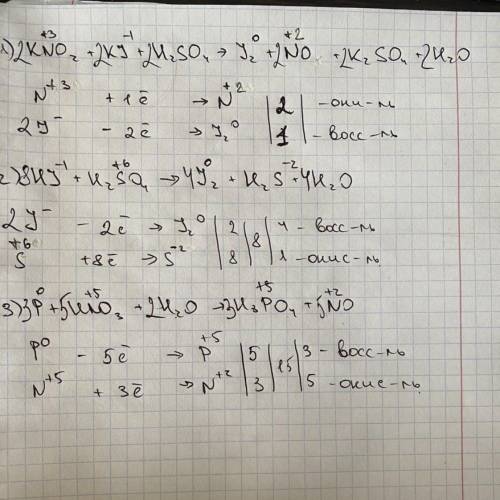 1) 2KN⁺³O₂ + 2KJ⁻¹ + 2H₂SO₄ → J₂⁰ + 2N⁺²O + 2K₂SO₄ + 2H₂O
N⁺³ + 1ē → N⁺² | 2 | - окис-ль
2J⁻ - 2ē → J₂⁰ | 1 | - восс-ль
2) 8HJ⁻¹ + H₂S⁺⁶O₄ → 4J₂⁰ + H₂S⁻² + 4H₂O
2J⁻ - 2ē → J₂⁰ | 2 | 8 | 4 - восс-ль
S⁺⁶ +8ē → S⁻² | 8 | | 1 - окис-ль
3) 3P⁰ + 5HN⁺⁵O₃ + 2H₂O → 3H₃P⁺⁵O₄ + 5N⁺²O
P⁰ - 5ē → P⁺⁵ | 5 | 15 | 3 - восс-ль
N⁺⁵ + 3ē → N⁺² | 3 | | 5 - окис-ль